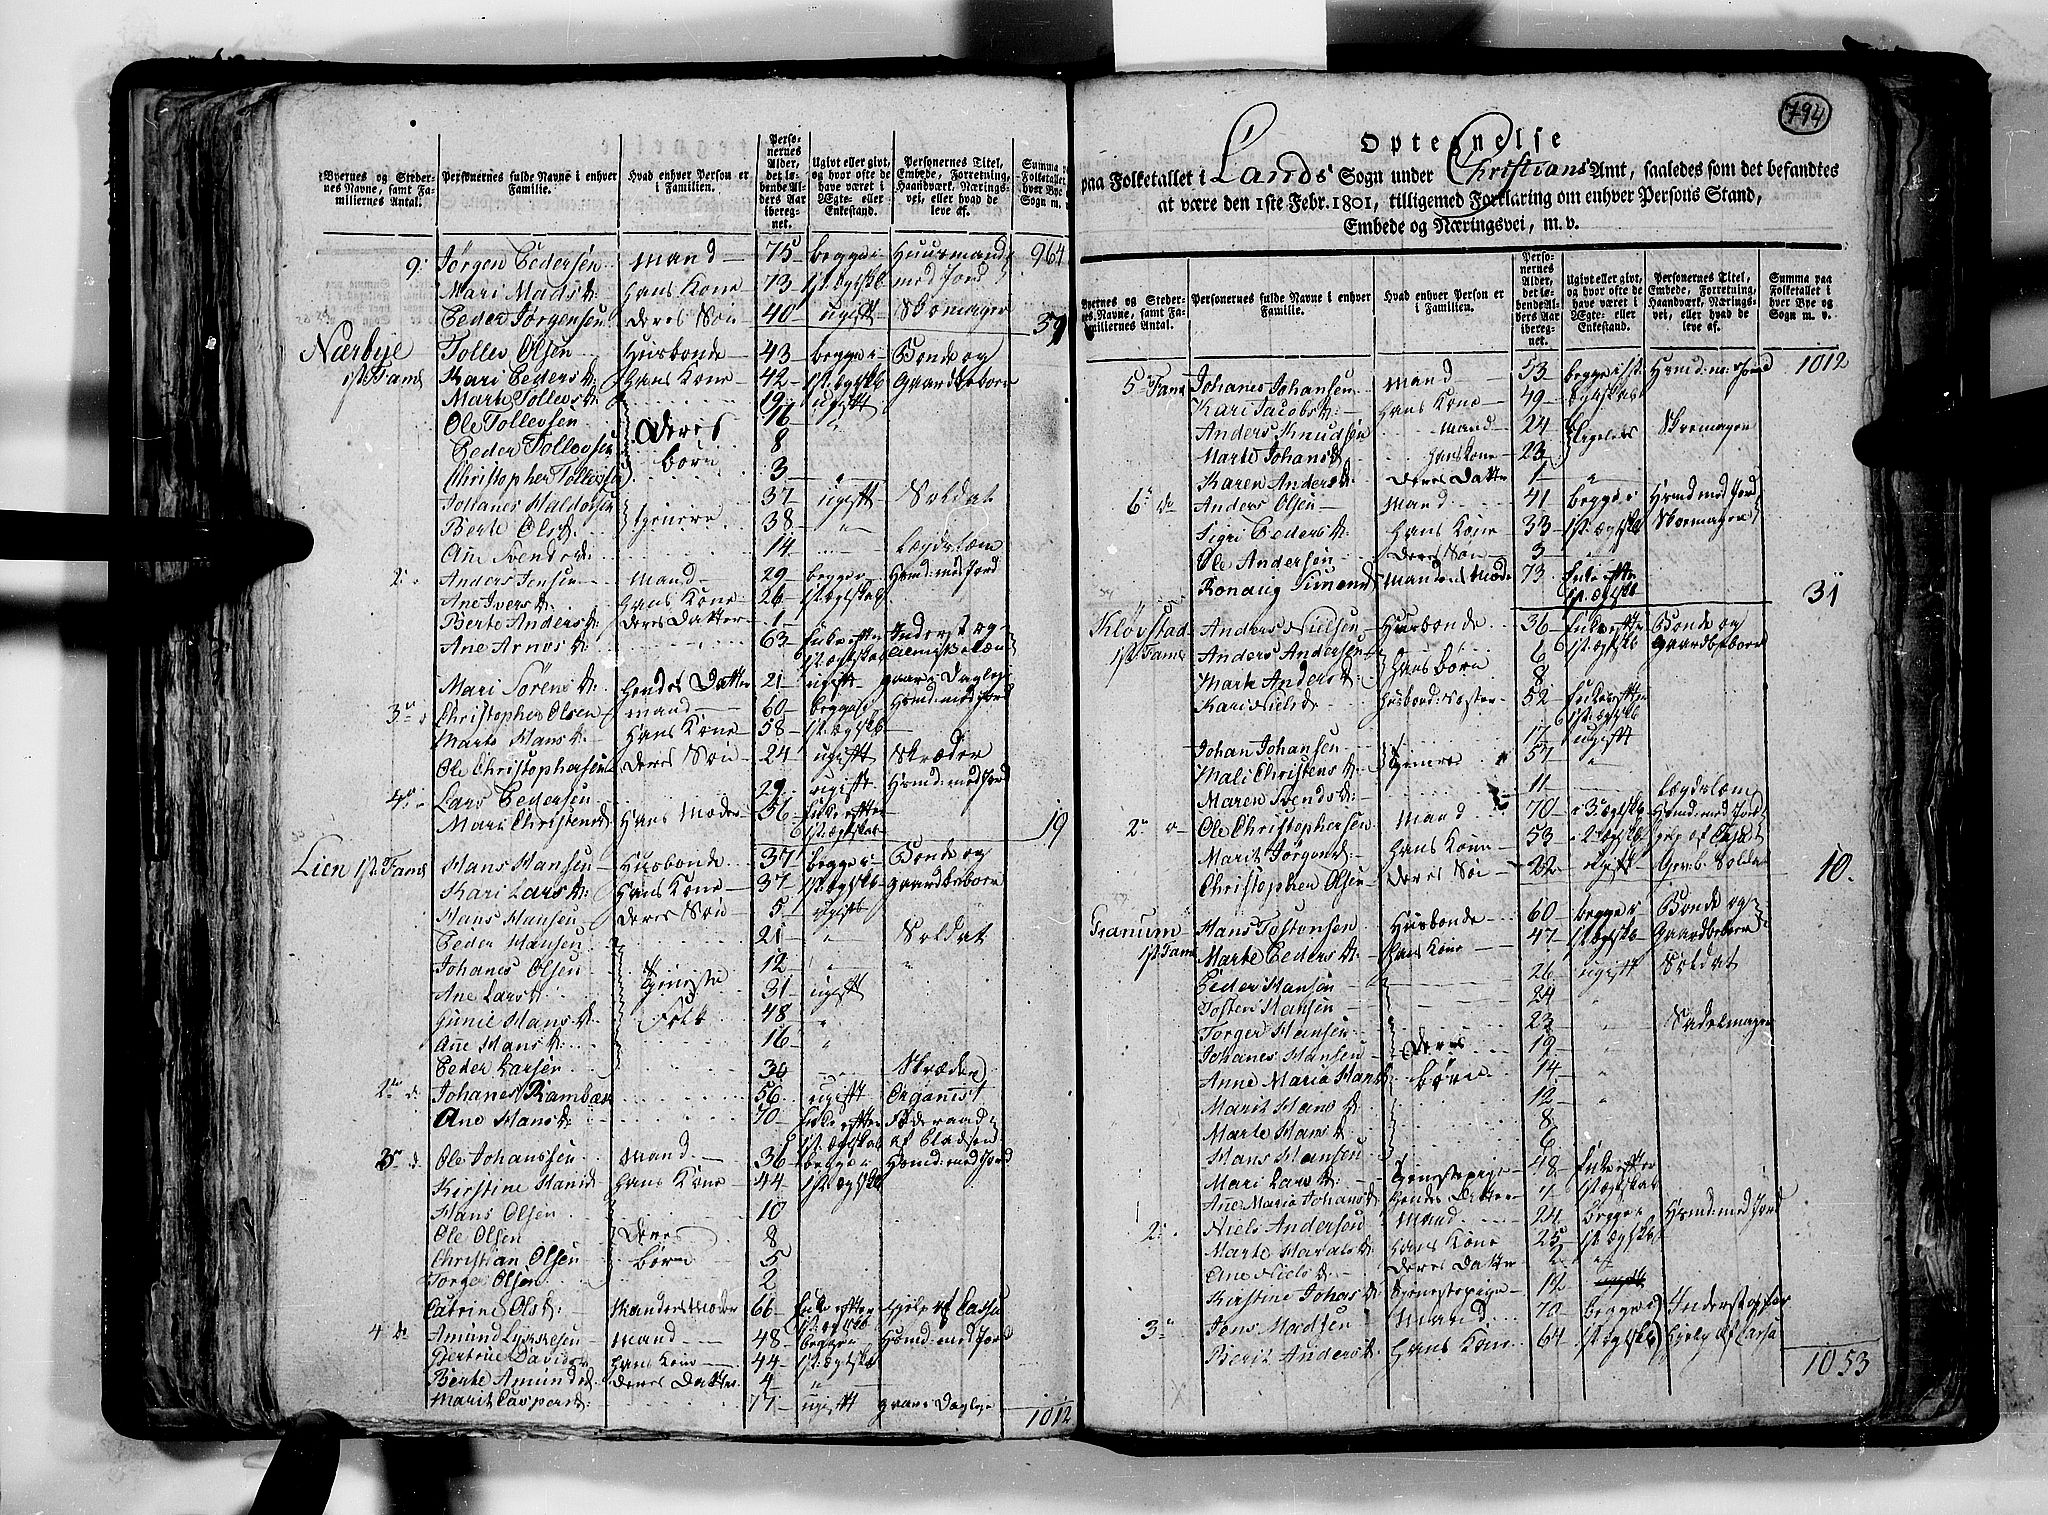 794
Byernes og Stedernes Navne, samt Familiernes Antal.
Personernes fulde Navne i enhver Familie.
Hvad enhver Person er i Familien.
Personernes Alder, det løbende Alders Aar iberegnet.
Ugivt eller givt, og hvor ofte de have været i Ægte- eller Enkestand.
Personernes Titel, Embede, Forretning, Haandværk, Næringsvei, eller hvad de leve af.
Summa paa Folketallet i hver Bye og Sogn m. v.
9: Jørgen Pedersen mand 75 begge i Huusmand 964
Mari Mads D: hans Kone 73 1st ægtsk med Jord
Peder Jørgensen deres Søn 40 ugift Skomager 39
Nærbye Tollev Olsen Husbonde 43 begge i Bonde og
1st Fam: Kari Peders D: hans Kone 42 1st ægtsk Gaardbeboer
Marte Tollevs D: 19 ugift
Ole Tollevsen deres 16 "
Peder Tollevsen børn 8
Christopher Tollevsen 3 "
Johanes Haldorsen 37 ugift Soldat
Berte Ols D: 38 "
Ane Svends D: 14 Lægdslem
2 Anders Jensen mand 29 begge i Hsmd: med Jord
Ane Ivers D: hans Kone 26 1st ægtskab
Berte Anders D: deres Datter 1
Ane Arnes D: 63 Enke efter
Mari Sørens D: hendes Datter 21 ugift
3 Christopher Olsen mand 60 begge i Hsmd: med Jord
Marte Hans D: hans Kone 58 1st ægtsk
Ole Christophersen deres Søn 24 ugift Skræder
4 Lars Pedersen 29 ugift Hsmd: med Jord
Mari Christens D: hans Moder 56 Enke efter 1st ægtskab 19
Lien 1st Fam: Hans Hansen Husbonde 37 begge i Bonde og
Kari Lars D: hans Kone 37 1st ægtsk gaardbeboer
Hans Hansen deres Søn 5 ugift
Peder Hansen 21 " Soldat
Johanes Olsen 12 " "
Ane Lars D: tjeneste 31 ugift
Gunie Hans D: Folk 48 "
Ane Hans D: 16 "
Peder Larsen 30 Skræder
2 d: Johanes Rambæk 56 ugift Organist
Ane Hans D: 70 Enke efter Føderaad
1st ægtskab af Pladsen
3 d: Ole Johanssen mand 36 begge i Hsmd: med Jord
Kirstine Hans D: hans Kone 44 1st ægtsk
Hans Olsen 10
Ole Olsen deres 8
Christian Olsen børn 5
Torger Olsen 2
Catrine Ols D: Mandens Moder 66 Enke efter hjelp af Cassa
4 do Amund Lyckesen mand 48 begge i Hsmd: med Jord
Bertrue Davids D: hans Kone 44 1st ægtsk
Berte Amunds D: deres Datter 4 "
Marit Caspers D: 77 ugift
1012
Optegnelse
paa Folketallet i Lands Sogn under Christians Amt, saaledes som det befandtes
at være den 1ste Febr. 1801, tilligemed Forklaring om enhver Persons Stand,
Embede og Næringsvei, m. v.
Byernes og Stedernes Navne, samt Familiernes Antal.
Personernes fulde Navne i enhver Familie.
Hvad enhver Person er i Familien.
Personernes Alder, det løbende Alders Aar iberegnet.
Ugivt eller givt, og hvor ofte de have været i Ægte- eller Enkestand.
Personernes Titel, Embede, Forretning, Haandværk, Næringsvei, eller hvad de leve af.
Summa paa Folketallet i hver Bye og Sogn m. v.
5 Fam Johanes Johansen mand 53 begge i 1st Hsmd: m: Jord 1012
Kari Jacobs D: hans Kone 49 ægtskab
Anders Knudsen mand 24 Skomager
Marte Johans D: hans Kone 23
Karen Anders D: deres Datter 1 "
6 do Anders Olsen mand 41 begge i Hsmd med Jord
Sigri Peders D: hans Kone 33 1st ægtsk Skomager
Ole Andersen deres Søn 3 "
Ronaug Simens D: Mandens Moder 73 Enke efter 1st ægtsk 31
Kløvstad Anders Nielsen Husbonde 36 Enke efter Bonde og
1st Fam: Anders Andersen hans børn 6 1st ægtsk gaardbeboer
Marte Anders D: 8
Kari Niels D: Husbond: Søster 52 Enke efter 1st ægtsk
Johan Johansen 17 ugift
Mali Christens D: 57 "
Maren Svends D: 11 Lægdslem
2 Ole Christophersen mand 70 i 3 ægtsk Hsmd: med Jord
Marit Jørgens D: hans Kone 53 i 2 ægtsk
Christopher Olsen deres Søn 22 ugift Gevb: Soldat 10
Granum Hans Tostensen Husbonde 60 begge i Bonde og
1st Fam: Marte Peders D: hans Kone 47 1st ægtsk Gaardbeboer
Peder Hansen 26 ugift Soldat
Tosten Hansen 24 "
Torger Hansen 23 " Sadelmager
Johanes Hansen deres 19 "
Anne Maria Hans D: børn 14 "
Marit Hans D: 12 "
Marte Hans D: 8
Hans Hansen 6
Mari Lars D: tjenestepige 48 Enke efter
Ane Maria Johans D: hendes Datter 7 1st ægtskab
2 Niels Andersen mand 24 begge i Hsmd: med Jord
Marte Haralds D: hans Kone 25 1st ægtskab
Ane Niels D: deres Datter 2 "
Kirstine Johans D: tjenestepige 12
3 Jens Madsen mand 70 begge i Inderst og faar
Berit Anders D: hans Kone 64 1st ægtsk hjelp af Cassa
1053